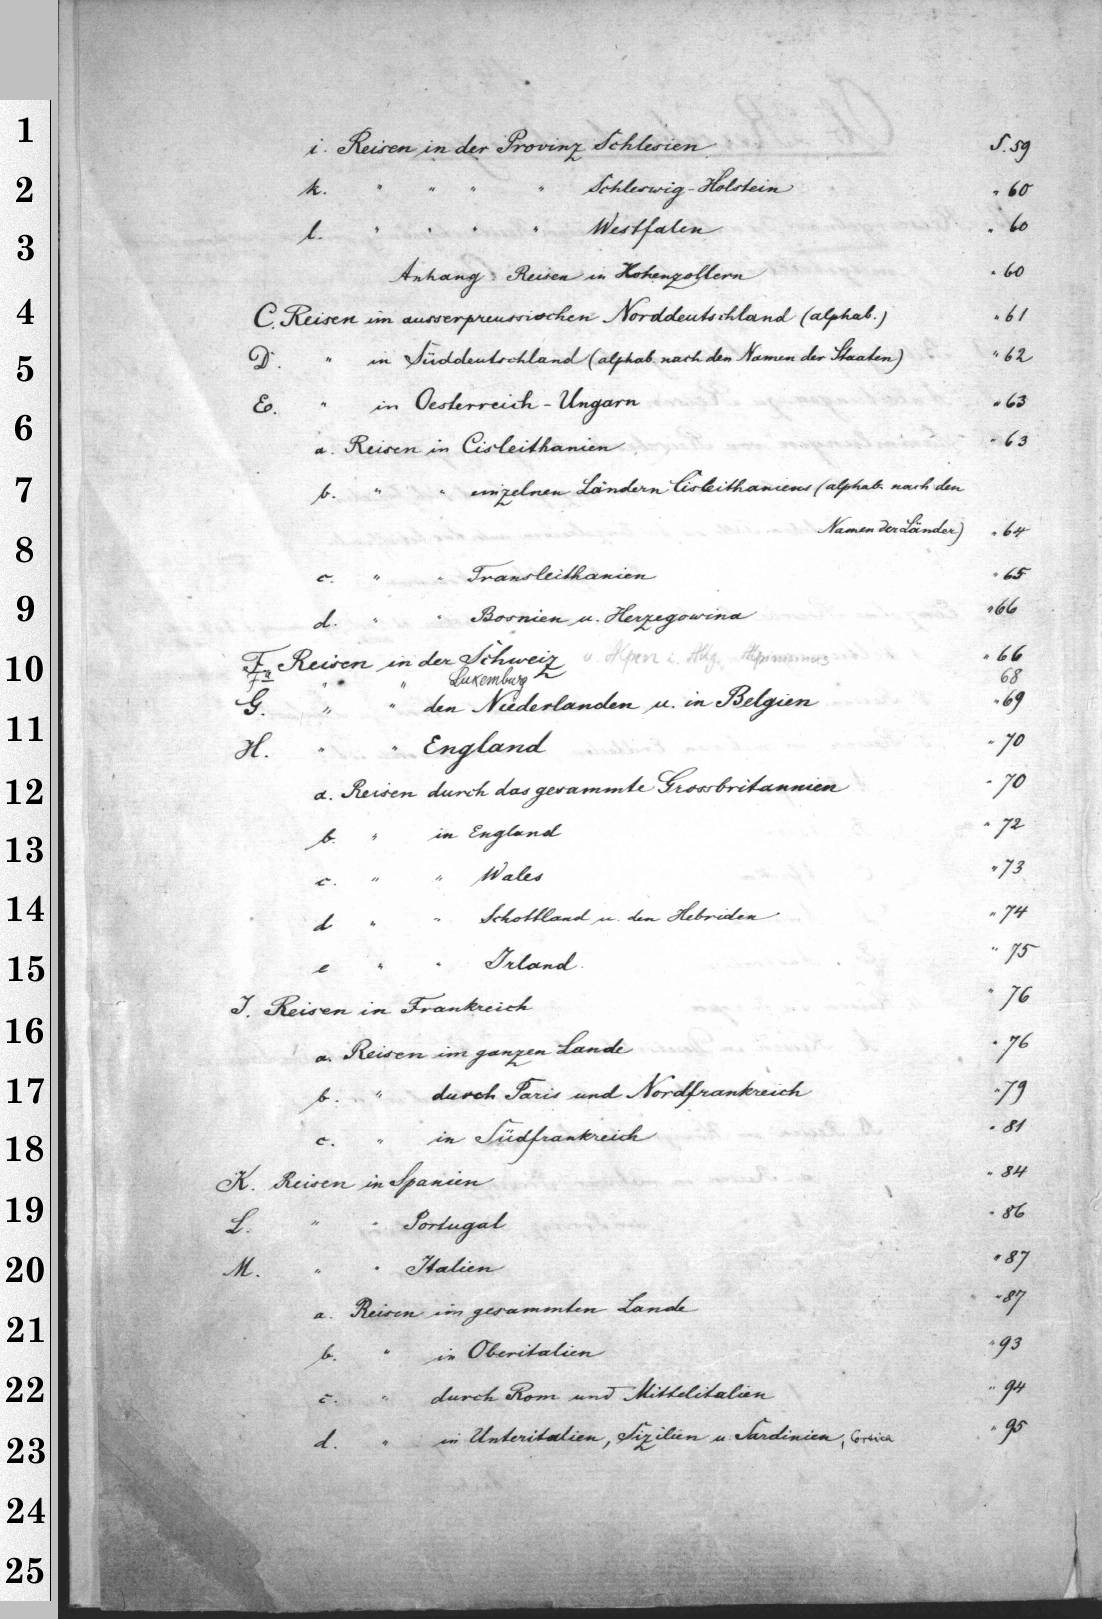 1
2
3
4
5
6
7
8
9
10
11
12
13
14
15
16
17
18
19
20
21
22
23
24
25
i. Reisen in der Provinz Schlesien S. 59
k. " " " " Schleswig-Holstein " 60
l. " " " " Westfalen " 60
Anhang: Reisen in Hohenzollern " 60
C. Reisen im ausserpreussischen Norddeutschland (alphab.) " 61
D. " in Süddeutschland (alphab. nach den Namen der Staaten) " 62
E. " in Oesterreich-Ungarn " 63
a. Reisen in Cisleithanien " 63
b. " " einzelnen Ländern Cisleithaniens (alphab. nach den
Namen der Länder) " 64
c. " " Transleithanien " 65
d. " " Bosnien u. Herzegowina " 66
F. Reisen in der Schweiz u. Alpen i. Allg. Alpinismus " 66
Fa " " Luxemburg 68
G. " " den Niederlanden u. in Belgien " 69
H. " " England " 70
a. Reisen durch das gesammte Grossbritannien " 70
b. " in England " 72
c. " " Wales " 73
d " " Schottland u. den Hebriden " 74
e " " Irland " 75
J. Reisen in Frankreich " 76
a. Reisen im ganzen Lande " 76
b. " durch Paris und Nordfrankreich " 79
c. " in Südfrankreich " 81
K. Reisen in Spanien " 84
L. " " Portugal " 86
M. " " Italien " 87
a. Reisen im gesammten Lande " 87
b. " in Oberitalien " 93
c. " durch Rom und Mittelitalien " 94
d. " in Unteritalien, Sizilien u. Sardinien, Corsica " 95